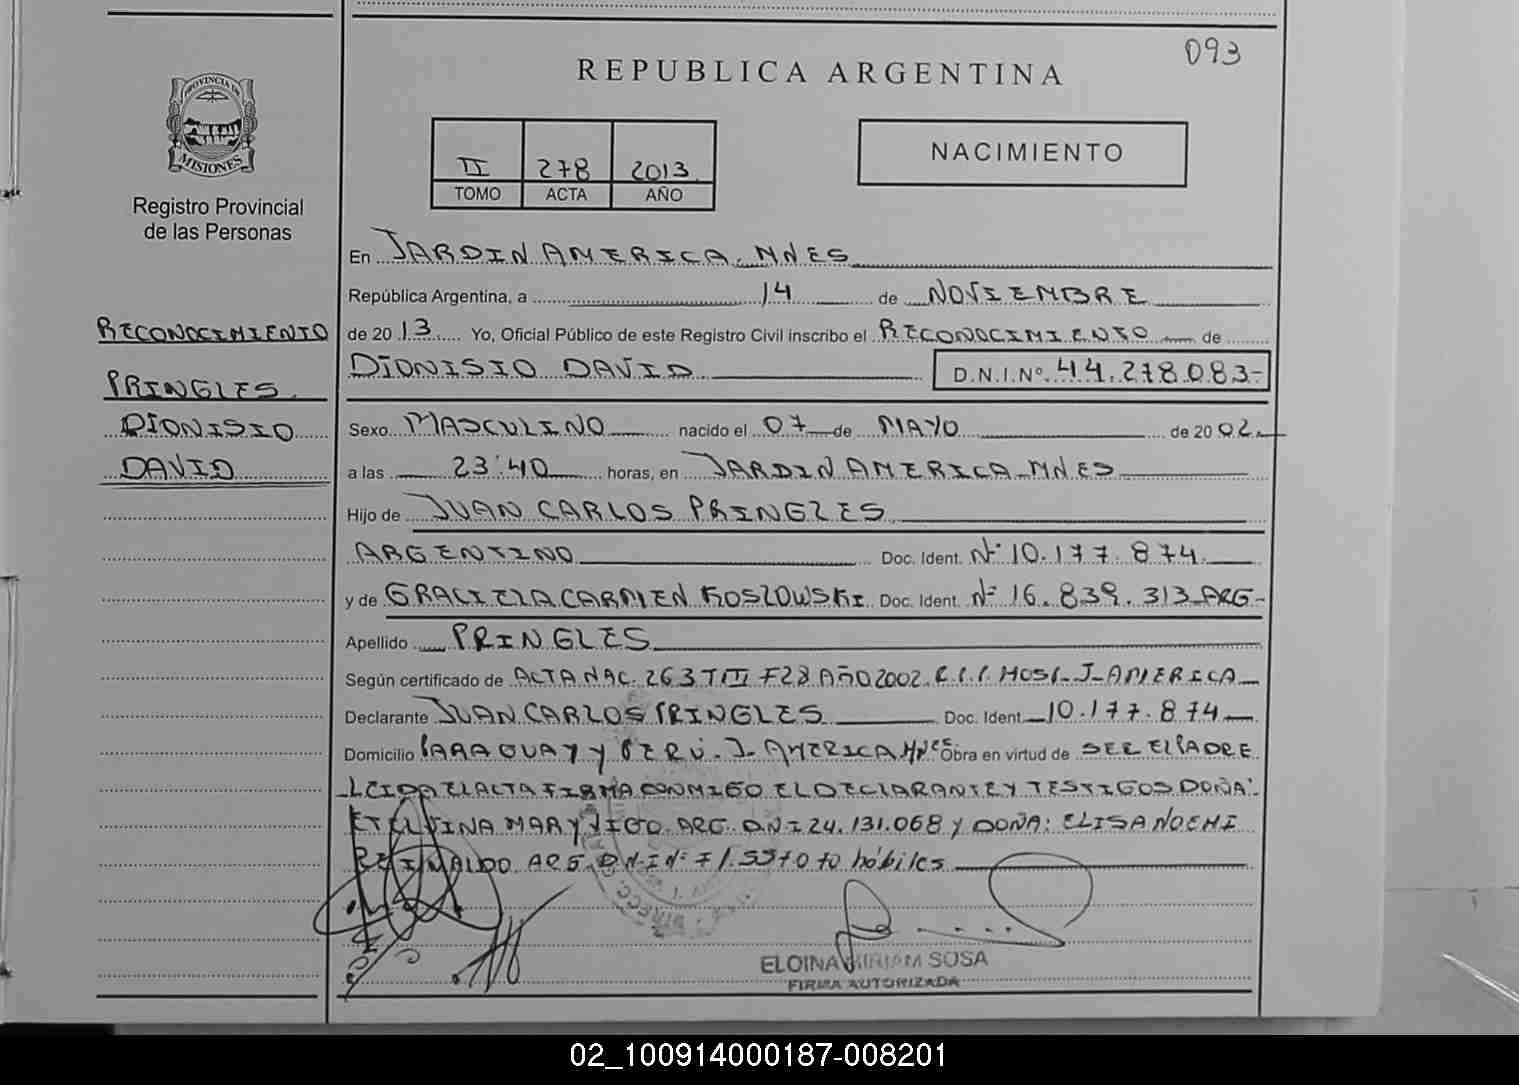 093
REPUBLICA ARGENTINA
PROVINCIA DE
MISIONES
Registro Provincial
de las Personas
II 278 2013
TOMO ACTA AÑO
NACIMIENTO
RECONOCIMIENTO
PRINGLES
DIONISIO
DAVID
En JARDIN AMERICA. MNES
República Argentina, a 14 de NOVIEMBRE
de 2013 Yo, Oficial Público de este Registro Civil inscribo el RECONOCIMIENTO de
DIONISIO DAVID D.N.I.Nº 44.278.083-
Sexo MASCULINO nacido el 07 de MAYO de 2002
a las 23:40 horas, en JARDIN AMERICA MNES
Hijo de JUAN CARLOS PRINGLES
ARGENTINO Doc. Ident. Nº 10.177.874
y de GRACIELA CARMEN KOSLOWSKI Doc. Ident. Nº 16.839.313 ARG-
Apellido PRINGLES
Según certificado de ACTA NAC. 263 T III F 28 AÑO 2002 HOSP. J. AMERICA
Declarante JUAN CARLOS PRINGLES Doc. Ident. 10.177.874
Domicilio PARAGUAY Y PERU. J. AMERICA MNES Obra en virtud de SER EL PADRE
LEIDA EL ACTA FIRMA CONMIGO EL DECLARANTE Y TESTIGOS DOÑA:
ETELVINA MARY ARG. D.N.I 24.131.068 Y DOÑA: ELISA NOEMI
REINALDO ARG. D.N.I Nº hábiles
ELOINA MIRIAM SOSA
FIRMA AUTORIZADA
02_100914000187-008201